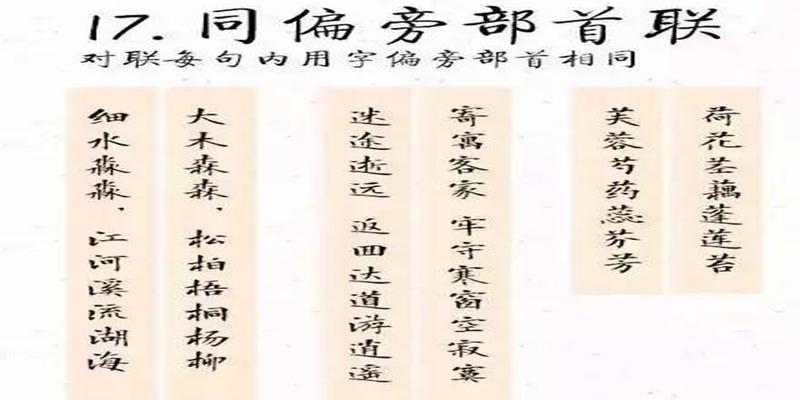 17. 同偏旁部首联
对联每句内用字偏旁部首相同
荷花茎藕蓬莲苔
芙蓉芍药蕊芬芳
寄寓客家 牢守寒窗空寂寞
迷途逝远 返回达道游逍遥
大木森森，松柏梧桐杨柳
细水淼淼，江河溪流湖海